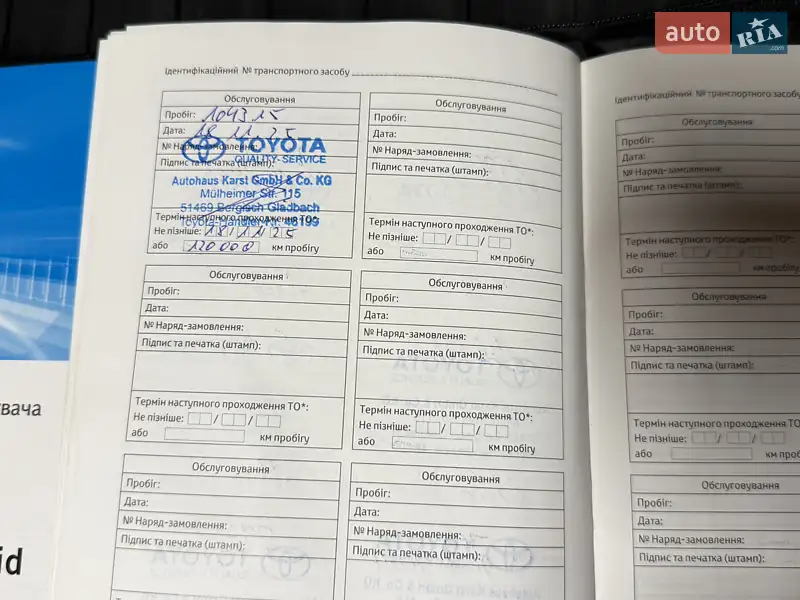 auto RIA .com
Ідентифікаційний № транспортного засобу
Обслуговування
Пробіг: 104315
Дата: 18 11 25
№ Наряд-замовлення:
Підпис та печатка (штамп):
TOYOTA
QUALITY-SERVICE
Autohaus Karst GmbH & Co. KG
Mülheimer Str. 115
51469 Bergisch Gladbach
Toyota-Händler-Nr. 46199
Термін наступного проходження ТО*:
Не пізніше: 18/11/25
або 120000 км пробігу
Обслуговування
Пробіг:
Дата:
№ Наряд-замовлення:
Підпис та печатка (штамп):
Термін наступного проходження ТО*:
Не пізніше: / /
або км пробігу
Обслуговування
Пробіг:
Дата:
№ Наряд-замовлення:
Підпис та печатка (штамп):
Термін наступного проходження ТО*:
Не пізніше: / /
або км пробігу
Обслуговування
Пробіг:
Дата:
№ Наряд-замовлення:
Підпис та печатка (штамп):
Термін наступного проходження ТО*:
Не пізніше: / /
або км пробігу
Обслуговування
Пробіг:
Дата:
№ Наряд-замовлення:
Підпис та печатка (штамп):
Обслуговування
Пробіг:
Дата:
№ Наряд-замовлення:
Підпис та печатка (штамп):
Ідентифікаційний № транспортного засобу
Обслуговування
Пробіг:
Дата:
№ Наряд-замовлення:
Підпис та печатка (штамп):
Термін наступного проходження ТО*:
Не пізніше: / /
або км пробігу
Обслуговування
Пробіг:
Дата:
№ Наряд-замовлення:
Підпис та печатка (штамп):
Термін наступного проходження ТО
Не пізніше: / /
або км проб
Обслуговування
Пробіг:
Дата:
№ Наряд-замовлення:
Підпис та печатка (штамп):
вача
id